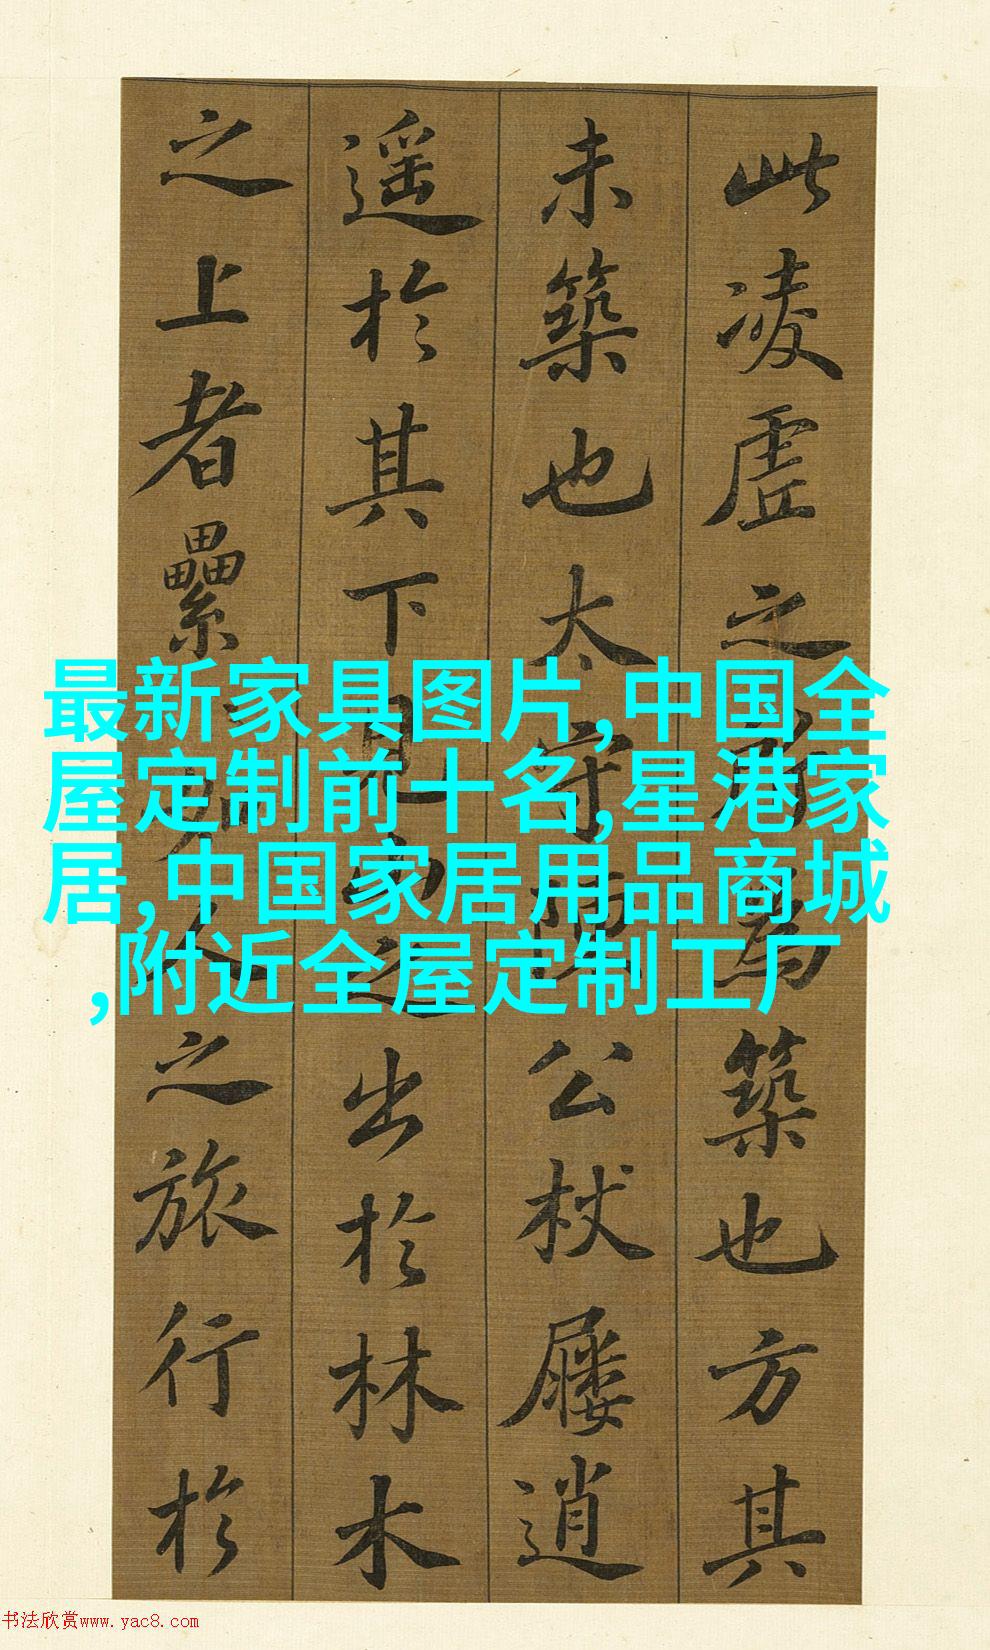 此凌虚之所為築也方其
未築也太守陳公杖屨逍
遥於其下見山之出於林木
之上者纍如人之旅行於
最新家具图片,中国全
屋定制前十名,星港家
居,中国家居用品商城
,附近全屋定制工厂
书法欣赏www.yac8.com